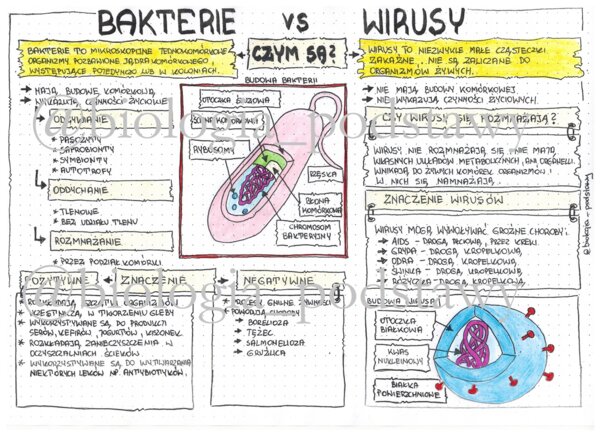 BAKTERIE VS WIRUSY
CZYM SĄ?
BAKTERIE TO MIKROSKOPIJNE JEDNOKOMÓRKOWE
ORGANIZMY POZBAWIONE JĄDRA KOMÓRKOWEGO,
WYSTĘPUJĄCE POJEDYNCZO LUB W KOLONIACH.
→ MAJĄ BUDOWĘ KOMÓRKOWĄ
→ WYKAZUJĄ CZYNNOŚCI ŻYCIOWE:
ODŻYWIANIE
- PASOŻYTY
- SAPROBIONTY
- SYMBIONTY
- AUTOTROFY
ODDYCHANIE
- TLENOWE
- BEZ UDZIAŁU TLENU
ROZMNAŻANIE
- PRZEZ PODZIAŁ KOMÓRKI
BUDOWA BAKTERII
OTOCZKA ŚLUZOWA
ŚCIANA KOMÓRKOWA
RYBOSOMY
RZĘSKA
BŁONA
KOMÓRKOWA
CHROMOSOM
BAKTERYJNY
POZYTYWNE ZNACZENIE NEGATYWNE
* ROZKŁADAJĄ SZCZĄTKI ORGANIZMÓW
* UCZESTNICZĄ W TWORZENIU GLEBY
* WYKORZYSTYWANE SĄ DO PRODUKCJI
SERÓW, KEFIRÓW, JOGURTÓW, KISZONEK.
* ROZKŁADAJĄ ZANIECZYSZCZENIA W
OCZYSZCZALNIACH ŚCIEKÓW.
* WYKORZYSTYWANE SĄ DO WYTWARZANIA
NIEKTÓRYCH LEKÓW NP. ANTYBIOTYKÓW.
PROCESY GNILNE ŻYWNOŚCI
POWODUJĄ CHOROBY
→ BORELIOZA
→ TĘŻEC
→ SALMONELLOZA
→ GRUŹLICA
WIRUSY TO NIEZWYKLE MAŁE CZĄSTECZKI
ZAKAŹNE, NIE SĄ ZALICZANE DO
ORGANIZMÓW ŻYWYCH.
→ NIE MAJĄ BUDOWY KOMÓRKOWEJ
→ NIE WYKAZUJĄ CZYNNOŚCI ŻYCIOWYCH.
CZY WIRUSY SIĘ ROZMNAŻAJĄ?
WIRUSY NIE ROZMNAŻAJĄ SIĘ, NIE MAJĄ
WŁASNYCH UKŁADÓW METABOLICZNYCH, ANI ORGANELLI
WNIKAJĄ DO ŻYWYCH KOMÓREK ORGANIZMU I
W NICH SIĘ NAMNAŻAJĄ.
ZNACZENIE WIRUSÓW
WIRUSY MOGĄ WYWOŁYWAĆ GROŹNE CHOROBY:
→ AIDS - DROGĄ PŁCIOWĄ, PRZEZ KREW
→ GRYPA - DROGĄ, KROPELKOWĄ,
→ ODRA - DROGĄ, KROPELKOWĄ,
→ ŚWINKA - DROGĄ, KROPELKOWĄ,
→ RÓŻYCZKA - DROGĄ, KROPELKOWĄ,
BUDOWA WIRUSA
OTOCZKA
BIAŁKOWA
KWAS
NUKLEINOWY
BIAŁKA
POWIERZCHNIOWE
@biologia_podstawy
@biologia_podstawy
@biologia_podstawy